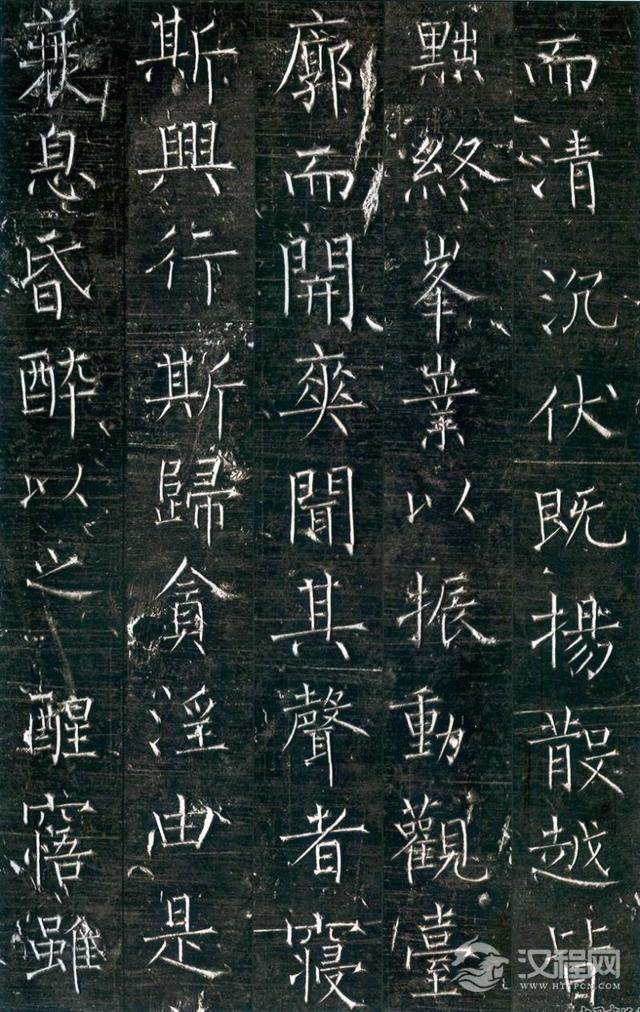 而清沉伏既揚散越皆
黜終峯業以振動觀臺
廓而開爽聞其聲者寢
斯興行斯歸貪淫由是
衰息昏醉以之醒寤雖
汉程网
WWW.HTTPCN.COM